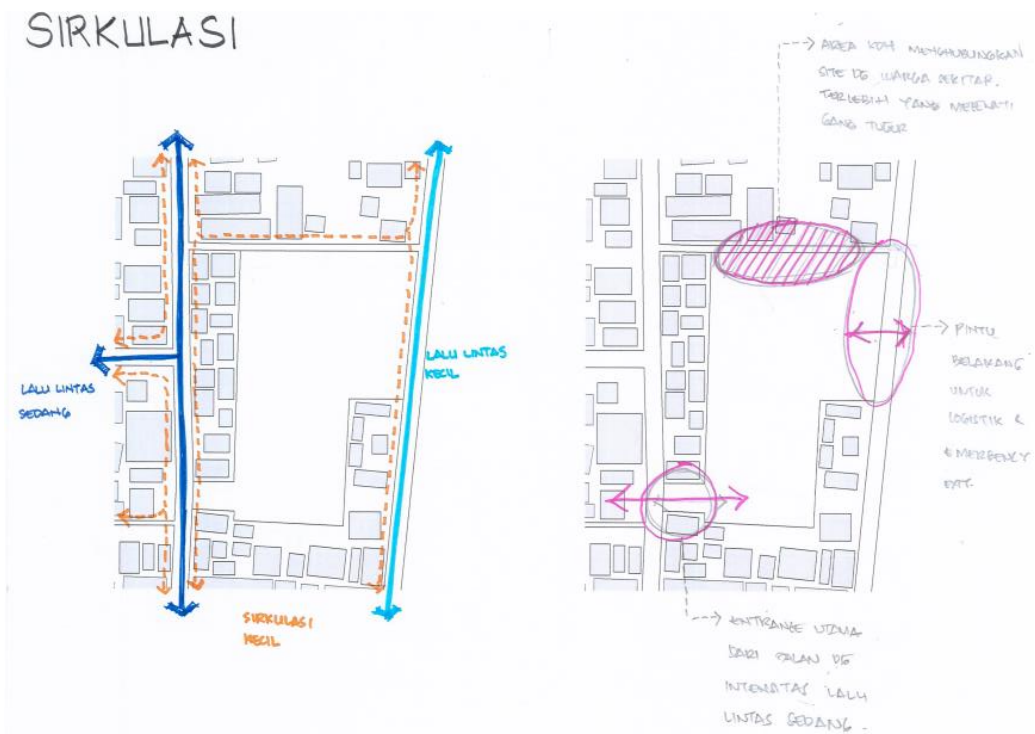 SIRKULASI
LALU LINTAS
SEDANG
LALU LINTAS
KECIL
SIRKULASI
KECIL
AREA YG MENGHUBUNGKAN
SITE DG WARGA SEKITAR,
TERLEBIH YANG MELEWATI
GANG TUGUR
PINTU
BELAKANG
UNTUK
LOGISTIK &
EMERGENCY
EXIT.
ENTRANCE UTAMA
DARI JALAN DG
INTENSITAS LALU
LINTAS SEDANG.